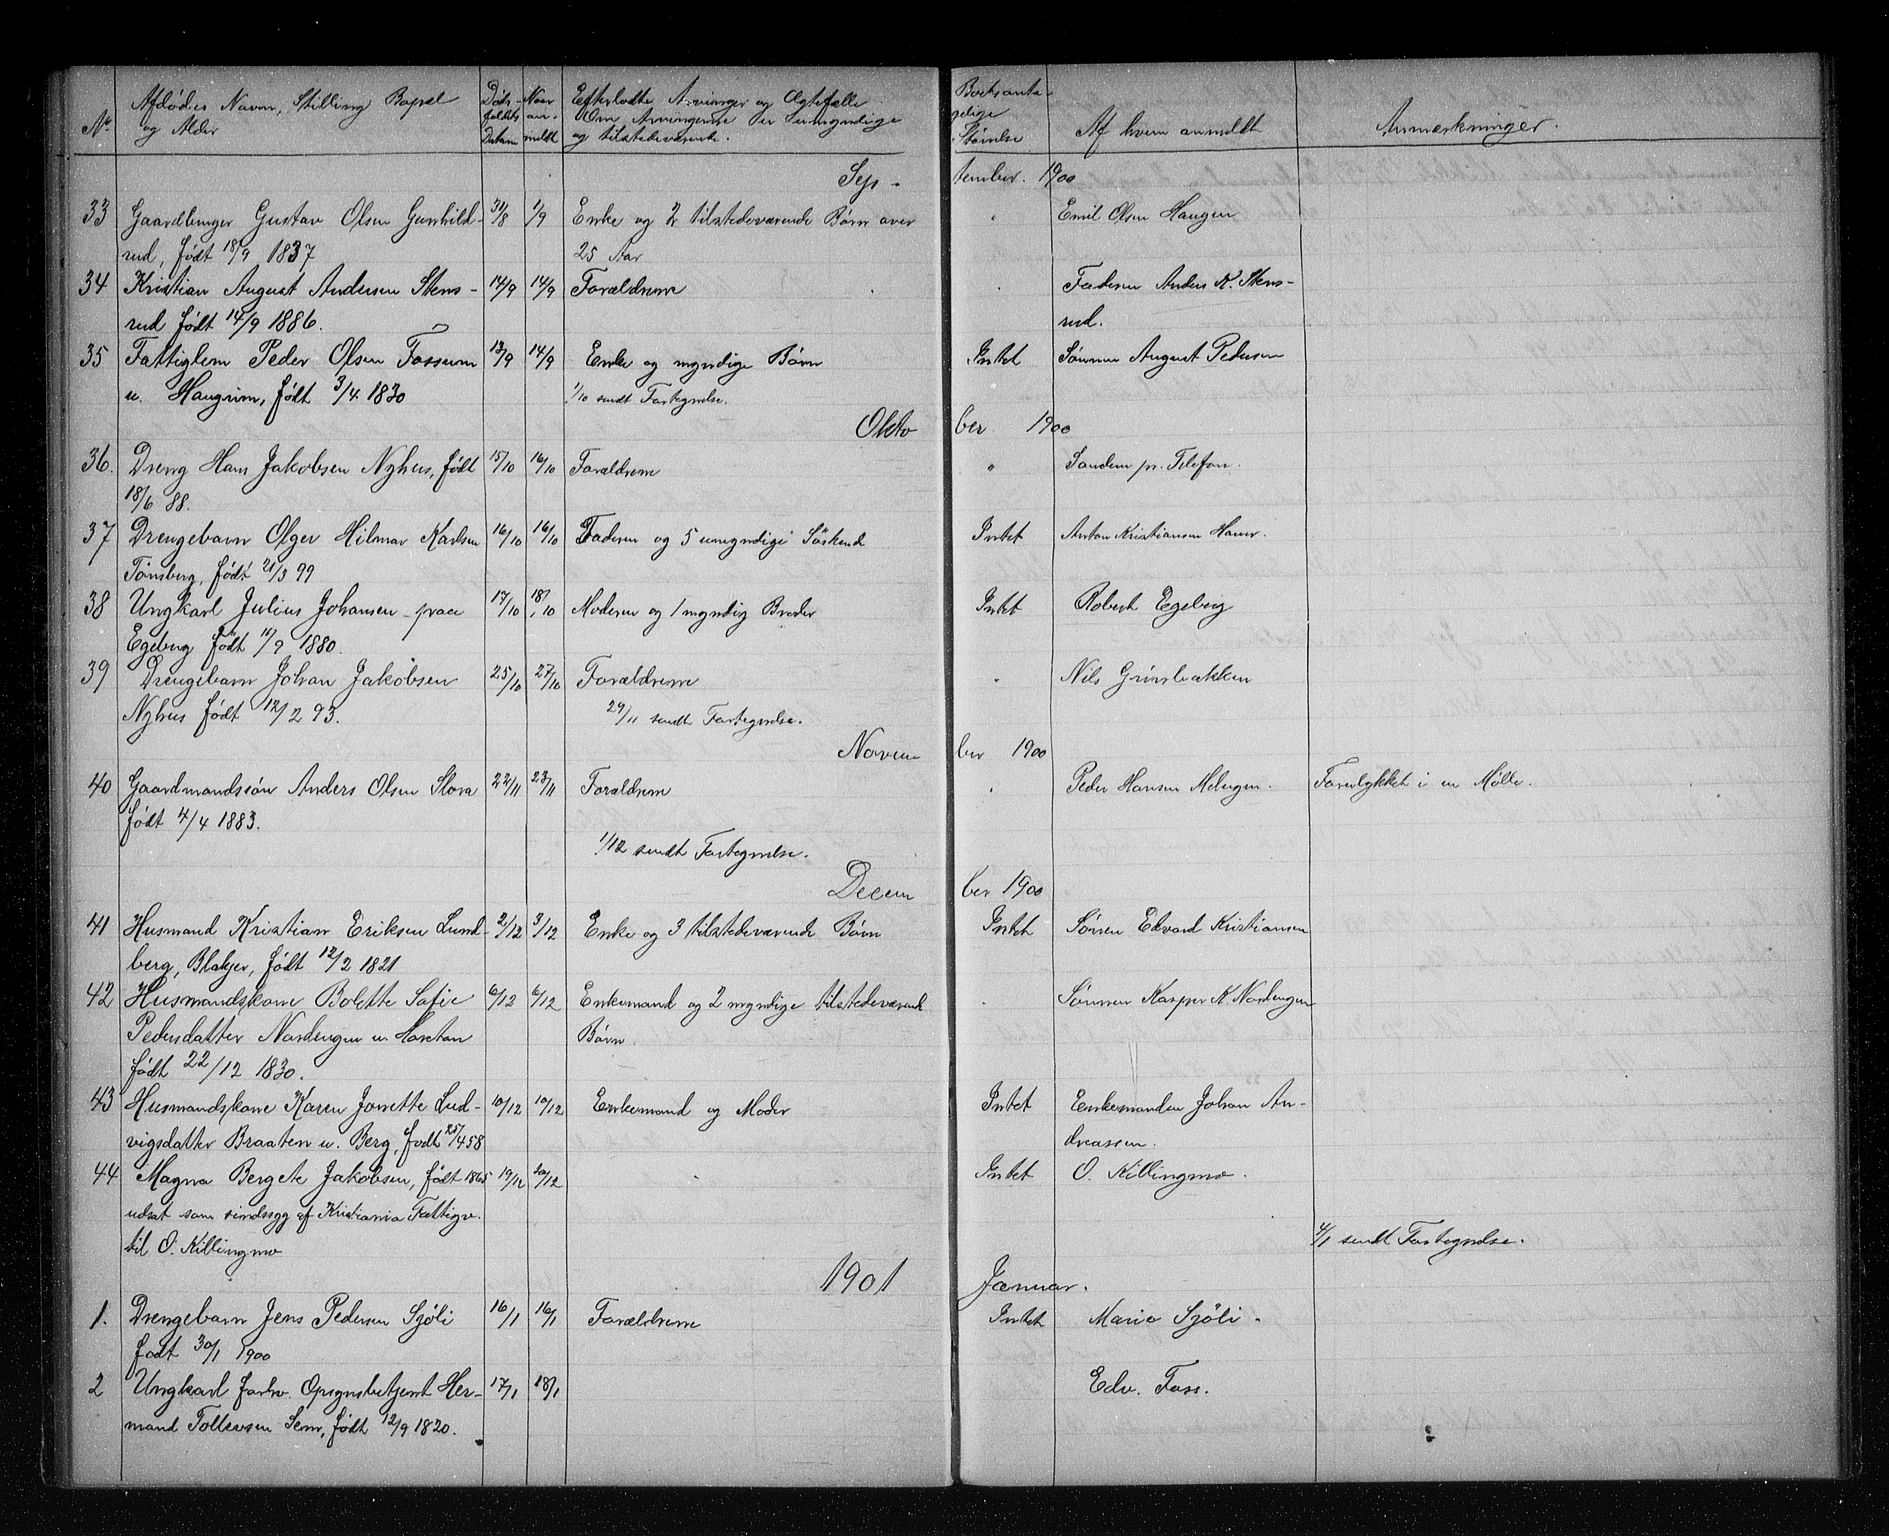 No. Afdødes Navn, Stilling Bopæl og Alder Døds-faldets Datum Naar an-meldt Efterladte Arvinger og Ægtefælle Om Arvingerne er umyndige og tilstedeværende. Boets anta-gelige Størrelse Af hvem anmeldt Anmærkninger.
Sep- tember. 1900
33 Gaardbruger Gustav Olsen Gunhild- 31/8 1/9 Enke og 2 tilstedeværende Børn over " Emil Olsen Haugen
rud, født 18/9 1837 25 Aar
34 Kristian August Andersen Stens- 14/9 14/9 Forældrene " Faderen Anders K. Stens-
rud født 14/9 1886. rud.
35 Fattiglem Peder Olsen Fossum 13/9 14/9 Enke og myndige Børn Intet Sønnen August Pedersen
u. Haugrim, født 3/4 1830 1/10 sendt Fortegnelse.
Okto ber 1900
36. Dreng Hans Jakobsen Nyhus, født 15/10 16/10 Forældrene " Sanden pr. Telefon.
18/6 88.
37 Drengebarn Olger Hilmar Karlsen 16/10 16/10 Faderen og 5 umyndige Søskende Intet Anton Kristiansen Haner.
Tønsberg, født 21/3 99
38 Ungkarl Julius Johansen paa 17/10 18/10 Moderen og 1 myndig Broder Intet Robert Egeberg
Egeberg født 11/9 1880.
39 Drengebarn Johan Jakobsen 25/10 27/10 Forældrene " Nils Grinibakken
Nyhus født 12/2 93. 29/11 sendt Fortegnelse.
Novem ber 1900
40 Gaardmandssøn Anders Olsen Slora 22/11 23/11 Forældrene " Peder Hansen Melengen Forulykket i en Mølle.
født 4/4 1883.
1/12 sendt Fortegnelse.
Decem ber 1900
41 Husmand Kristian Eriksen Lund- 2/12 3/12 Enke og 3 tilstedeværende Børn Intet Sønnen Edvard Kristiansen
berg, Blakjer, født 12/2 1821
42 Husmandskone Bolette Sofie 6/12 6/12 Enkemand og 2 myndige tilstedeværende " Sønnen Kasper K. Nordengen
Pedersdatter Nordengen u. Horstan Børn.
født 22/12 1830.
43 Husmandskone Karen Jonette Lud- 10/12 10/12 Enkemand og Moder Intet Enkemanden Johan An-
vigsdatter Braaten u. Berg, født 25/4 58 dreassen.
44 Magna Bergete Jakobsen, født 1865 19/12 20/12 Intet O. Killingmo.
udsat som sindssyg af Kristiania Fattigv.
til O. Killingmo 4/1 sendt Fortegnelse.
1901 Januar.
1. Drengebarn Jens Pedersen Sjøli 16/1 16/1 Forældrene Intet Marie Sjøli.
født 30/1 1900
2 Ungkarl forhv. Opsynsbetjent Her- 17/1 18/1 Edv. Foss.
mand Tollevsen Sem, født 12/9 1820.